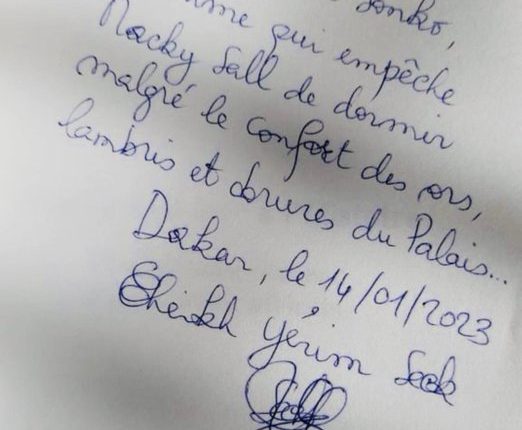 qui empêche
Macky Sall de dormir
malgré le confort des ors,
lambris et dorures du Palais...
Dakar, le 14/01/2023
Cheikh Yérim Seck